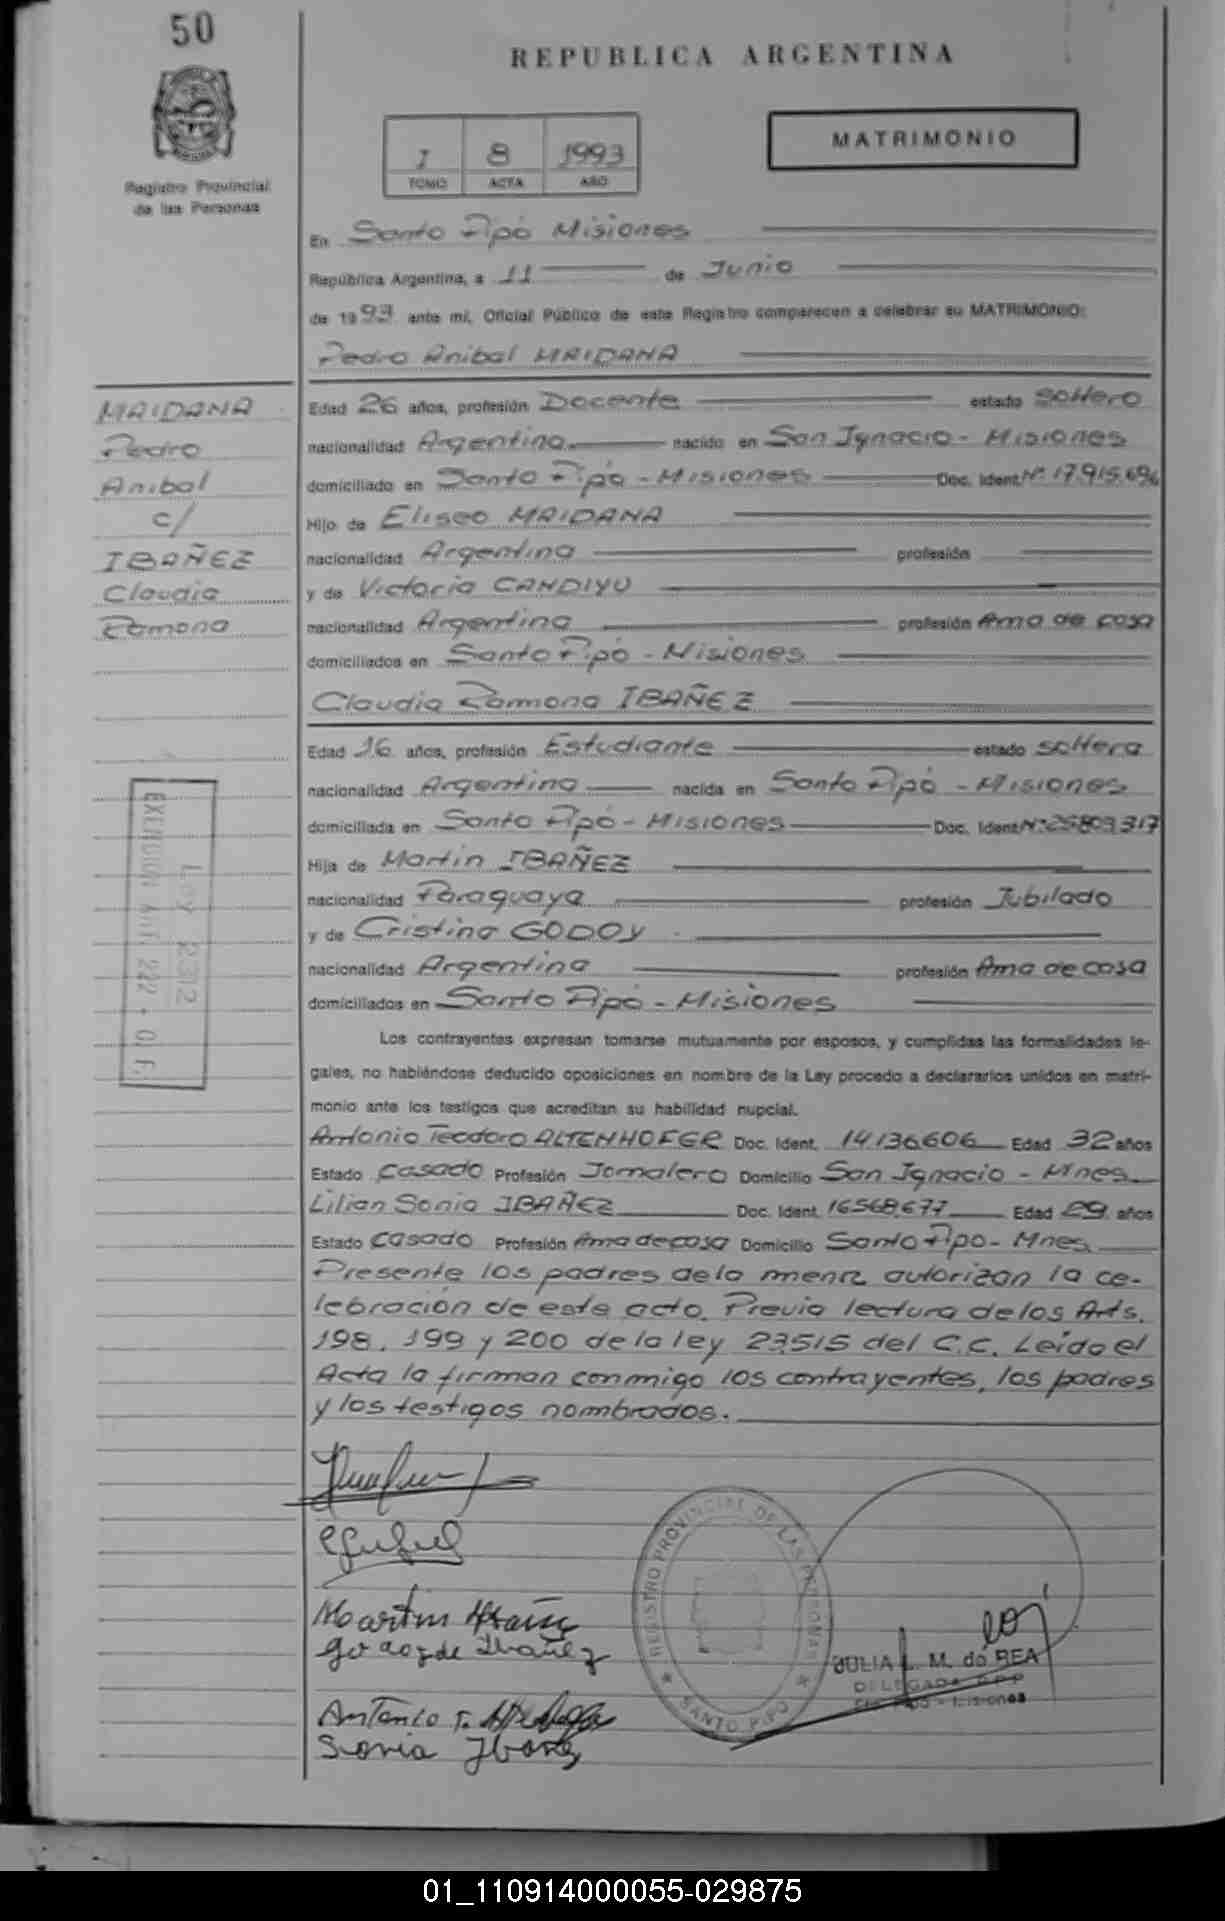 50
REPUBLICA ARGENTINA
MATRIMONIO
I 8 1993
TOMO ACTA AÑO
Registro Provincial
de las Personas
En Santo Pipó Misiones
República Argentina, a 11 de Junio
de 1993 ante mí, Oficial Público de este Registro comparecen a celebrar su MATRIMONIO:
Pedro Anibal MAIDANA
MAIDANA
Pedro
Anibal
c/
IBAÑEZ
Claudia
Ramona
Edad 26 años, profesión Docente estado soltero
nacionalidad Argentina nacido en San Ignacio - Misiones
domiciliado en Santo Pipó - Misiones Doc. Ident. Nº 17.915.696
Hijo de Eliseo MAIDANA
nacionalidad Argentina profesión
y de Victoria CANDIYU
nacionalidad Argentina profesión Ama de casa
domiciliados en Santo Pipó - Misiones
Claudia Ramona IBAÑEZ
Edad 16 años, profesión Estudiante estado soltera
nacionalidad Argentina nacida en Santo Pipó - Misiones
domiciliada en Santo Pipó - Misiones Doc. Ident. Nº 25.803.317
Hija de Martin IBAÑEZ
nacionalidad Paraguaya profesión Jubilado
y de Cristina GODOY
nacionalidad Argentina profesión Ama de casa
domiciliados en Santo Pipó - Misiones
Ley 2312
EXENCION Art. 222 - C. F.
Los contrayentes expresan tomarse mutuamente por esposos, y cumplidas las formalidades le-
gales, no habiéndose deducido oposiciones en nombre de la Ley procedo a declararlos unidos en matri-
monio ante los testigos que acreditan su habilidad nupcial.
Antonio Teodoro ALTENHOFER Doc. Ident. 14.136.606 Edad 32 años
Estado casado Profesión Jornalero Domicilio San Ignacio - Mnes
Lilian Sonia IBAÑEZ Doc. Ident. 16.568.677 Edad 29 años
Estado casado Profesión Ama de casa Domicilio Santo Pipo - Mnes
Presente los padres de la menor autorizan la ce-
lebración de este acto. Previa lectura de los Arts.
198, 199 y 200 de la ley 23.515 del C.C. Leída el
Acta la firman conmigo los contrayentes, los padres
y los testigos nombrados.
Martin Ibañez
Godoy de Ibañez
Antonio T.
Sonia Ibañez
REGISTRO PROVINCIAL DE LAS PERSONAS
SANTO PIPO
JULIA L. M. de REA
DELEGADA R.P.P
Sto. Pipó - Misiones
01_110914000055-029875